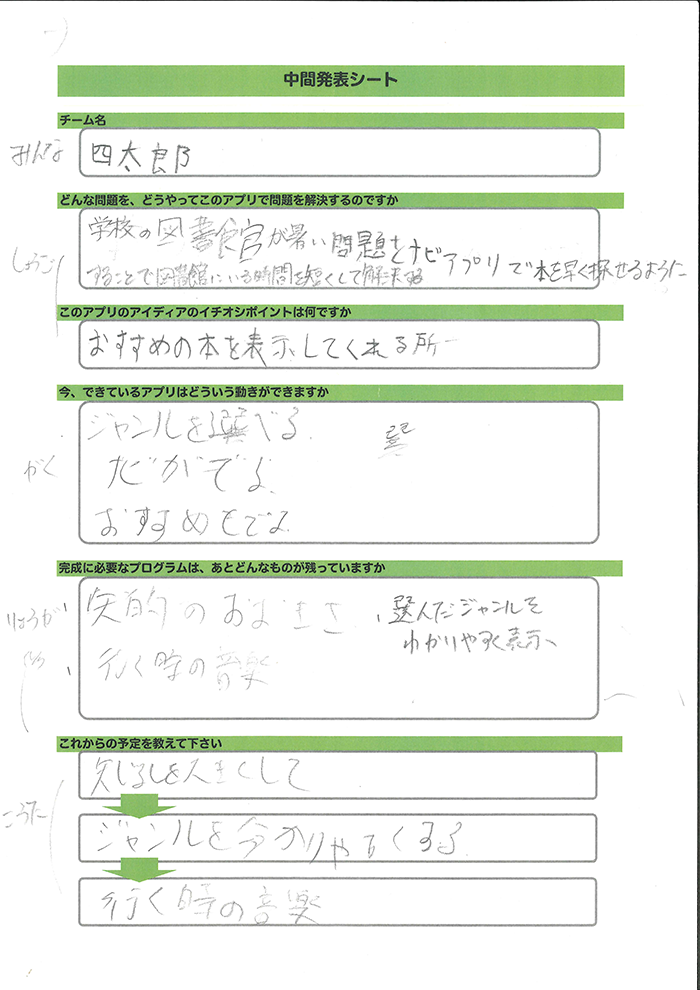 中間発表シート
チーム名
みんな
四太郎
どんな問題を、どうやってこのアプリで問題を解決するのですか
しょうご
学校の図書館が暑い問題をナビアプリで本を早く探せるように
することで図書館にいる時間を短くして解決する
このアプリのアイディアのイチオシポイントは何ですか
おすすめの本を表示してくれる所
今、できているアプリはどういう動きができますか
がく
ジャンルを選べる
おすすめもでる
完成に必要なプログラムは、あとどんなものが残っていますか
りょうが
の おおきさ
、選んだジャンルを
わかりやすく表示、
、行く時の音楽
これからの予定を教えて下さい
こうた
大きくして
ジャンルを分かりやすくする
行く時の音楽